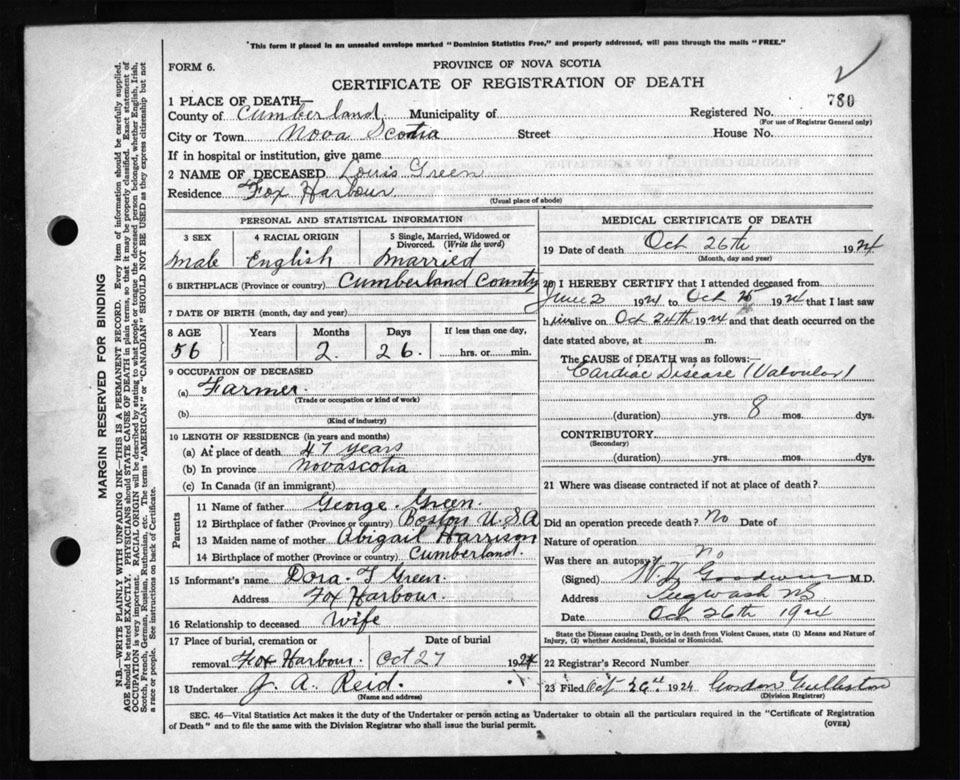 This form if placed in an unsealed envelope marked "Dominion Statistics Free," and properly addressed, will pass through the mails "FREE."
FORM 6.
PROVINCE OF NOVA SCOTIA
CERTIFICATE OF REGISTRATION OF DEATH
780
1 PLACE OF DEATH—
County of Cumberland Municipality of Registered No.
(For use of Registrar General only)
City or Town Nova Scotia Street House No.
If in hospital or institution, give name
2 NAME OF DECEASED Louis Green
Residence Fox Harbour
(Usual place of abode)
PERSONAL AND STATISTICAL INFORMATION
3 SEX 4 RACIAL ORIGIN 5 Single, Married, Widowed or Divorced. (Write the word)
Male English Married
6 BIRTHPLACE (Province or country) Cumberland County
7 DATE OF BIRTH (month, day and year)
8 AGE Years Months Days If less than one day,
56 2. 26. hrs. or min.
9 OCCUPATION OF DECEASED
(a) Farmer.
(Trade or occupation or kind of work)
(b)
(Kind of industry)
10 LENGTH OF RESIDENCE (in years and months)
(a) At place of death 47 years
(b) In province Novascotia
(c) In Canada (if an immigrant)
Parents
11 Name of father George Green.
12 Birthplace of father (Province or country) Boston U.S.A
13 Maiden name of mother Abigail Harrison
14 Birthplace of mother (Province or country) Cumberland.
15 Informant's name Dora. Green.
Address Fox Harbour.
16 Relationship to deceased Wife
17 Place of burial, cremation or Date of burial
removal Fox Harbour. Oct 27 1924
18 Undertaker J. A. Reid.
(Name and address)
MEDICAL CERTIFICATE OF DEATH
19 Date of death Oct 26th 1924
(Month, day and year)
20 I HEREBY CERTIFY that I attended deceased from
June 2 1924 to Oct 1924 that I last saw
him alive on Oct 24th 1924 and that death occurred on the
date stated above, at m.
The CAUSE OF DEATH was as follows:—
Cardiac Disease (Valvular)
(duration) yrs. 8 mos. dys.
CONTRIBUTORY
(Secondary)
(duration) yrs. mos. dys.
21 Where was disease contracted if not at place of death?
Did an operation precede death? No Date of
Nature of operation
Was there an autopsy? no
(Signed) Goodwin M.D.
Address Pugwash NS
Date Oct 26th 1924
State the Disease causing Death, or in death from Violent Causes, state (1) Means and Nature of
Injury, (2) whether Accidental, Suicidal or Homicidal.
22 Registrar's Record Number
23 Filed Oct 1924 Gordon
(Division Registrar)
SEC. 46—Vital Statistics Act makes it the duty of the Undertaker or person acting as Undertaker to obtain all the particulars required in the "Certificate of Registration
of Death" and to file the same with the Division Registrar who shall issue the burial permit.
(OVER)
MARGIN RESERVED FOR BINDING
N.B.—WRITE PLAINLY WITH UNFADING INK—THIS IS A PERMANENT RECORD. Every item of information should be carefully supplied.
AGE should be stated EXACTLY. PHYSICIANS should STATE CAUSE OF DEATH in plain terms, so that it may be properly classified. Exact statement of
OCCUPATION is very important. RACIAL ORIGIN will be described by stating to what people or tongue the deceased person belonged, whether English, Irish,
Scotch, French, German, Russian, Ruthenian, etc. The terms "AMERICAN" or "CANADIAN" SHOULD NOT BE USED as they express citizenship but not
a race or people. See instructions on back of Certificate.